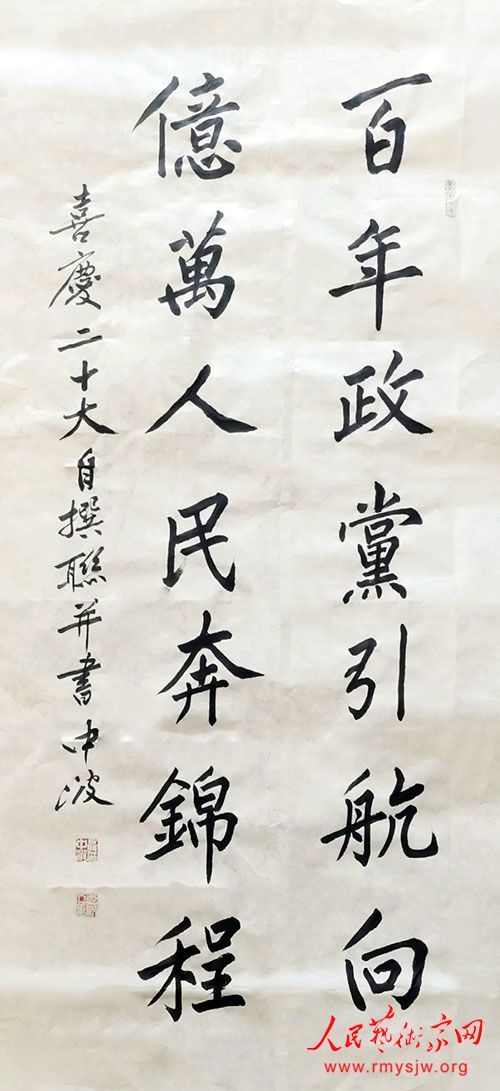 百年政黨引航向
億萬人民奔錦程
喜慶二十大自撰聯并書中波
人民艺术家网
www.rmysjw.org